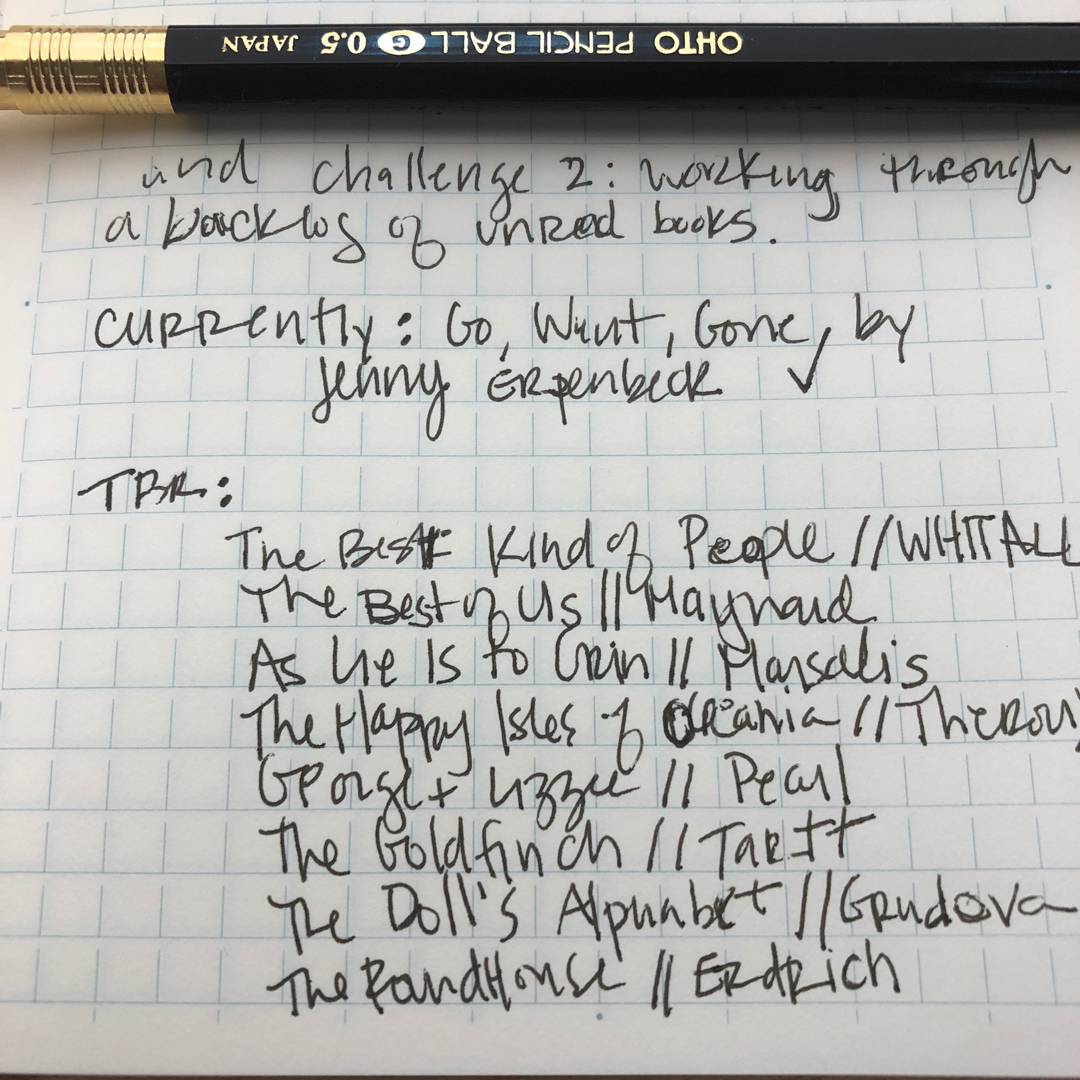 OHTO PENCIL BALL G 0.5 JAPAN
and challenge 2: working through
a backlog of unread books.
Currently: Go, Went, Gone, by
Jenny Erpenbeck ✓
TBR:
The Best Kind of People // WHITTALL
The Best of Us // Maynard
As Lie Is to Grin // Marsalis
The Happy Isles of Oceania // Theroux
George + Lizzie // Pearl
The Goldfinch // Tartt
The Doll's Alphabet // Grudova
The Round House // Erdrich